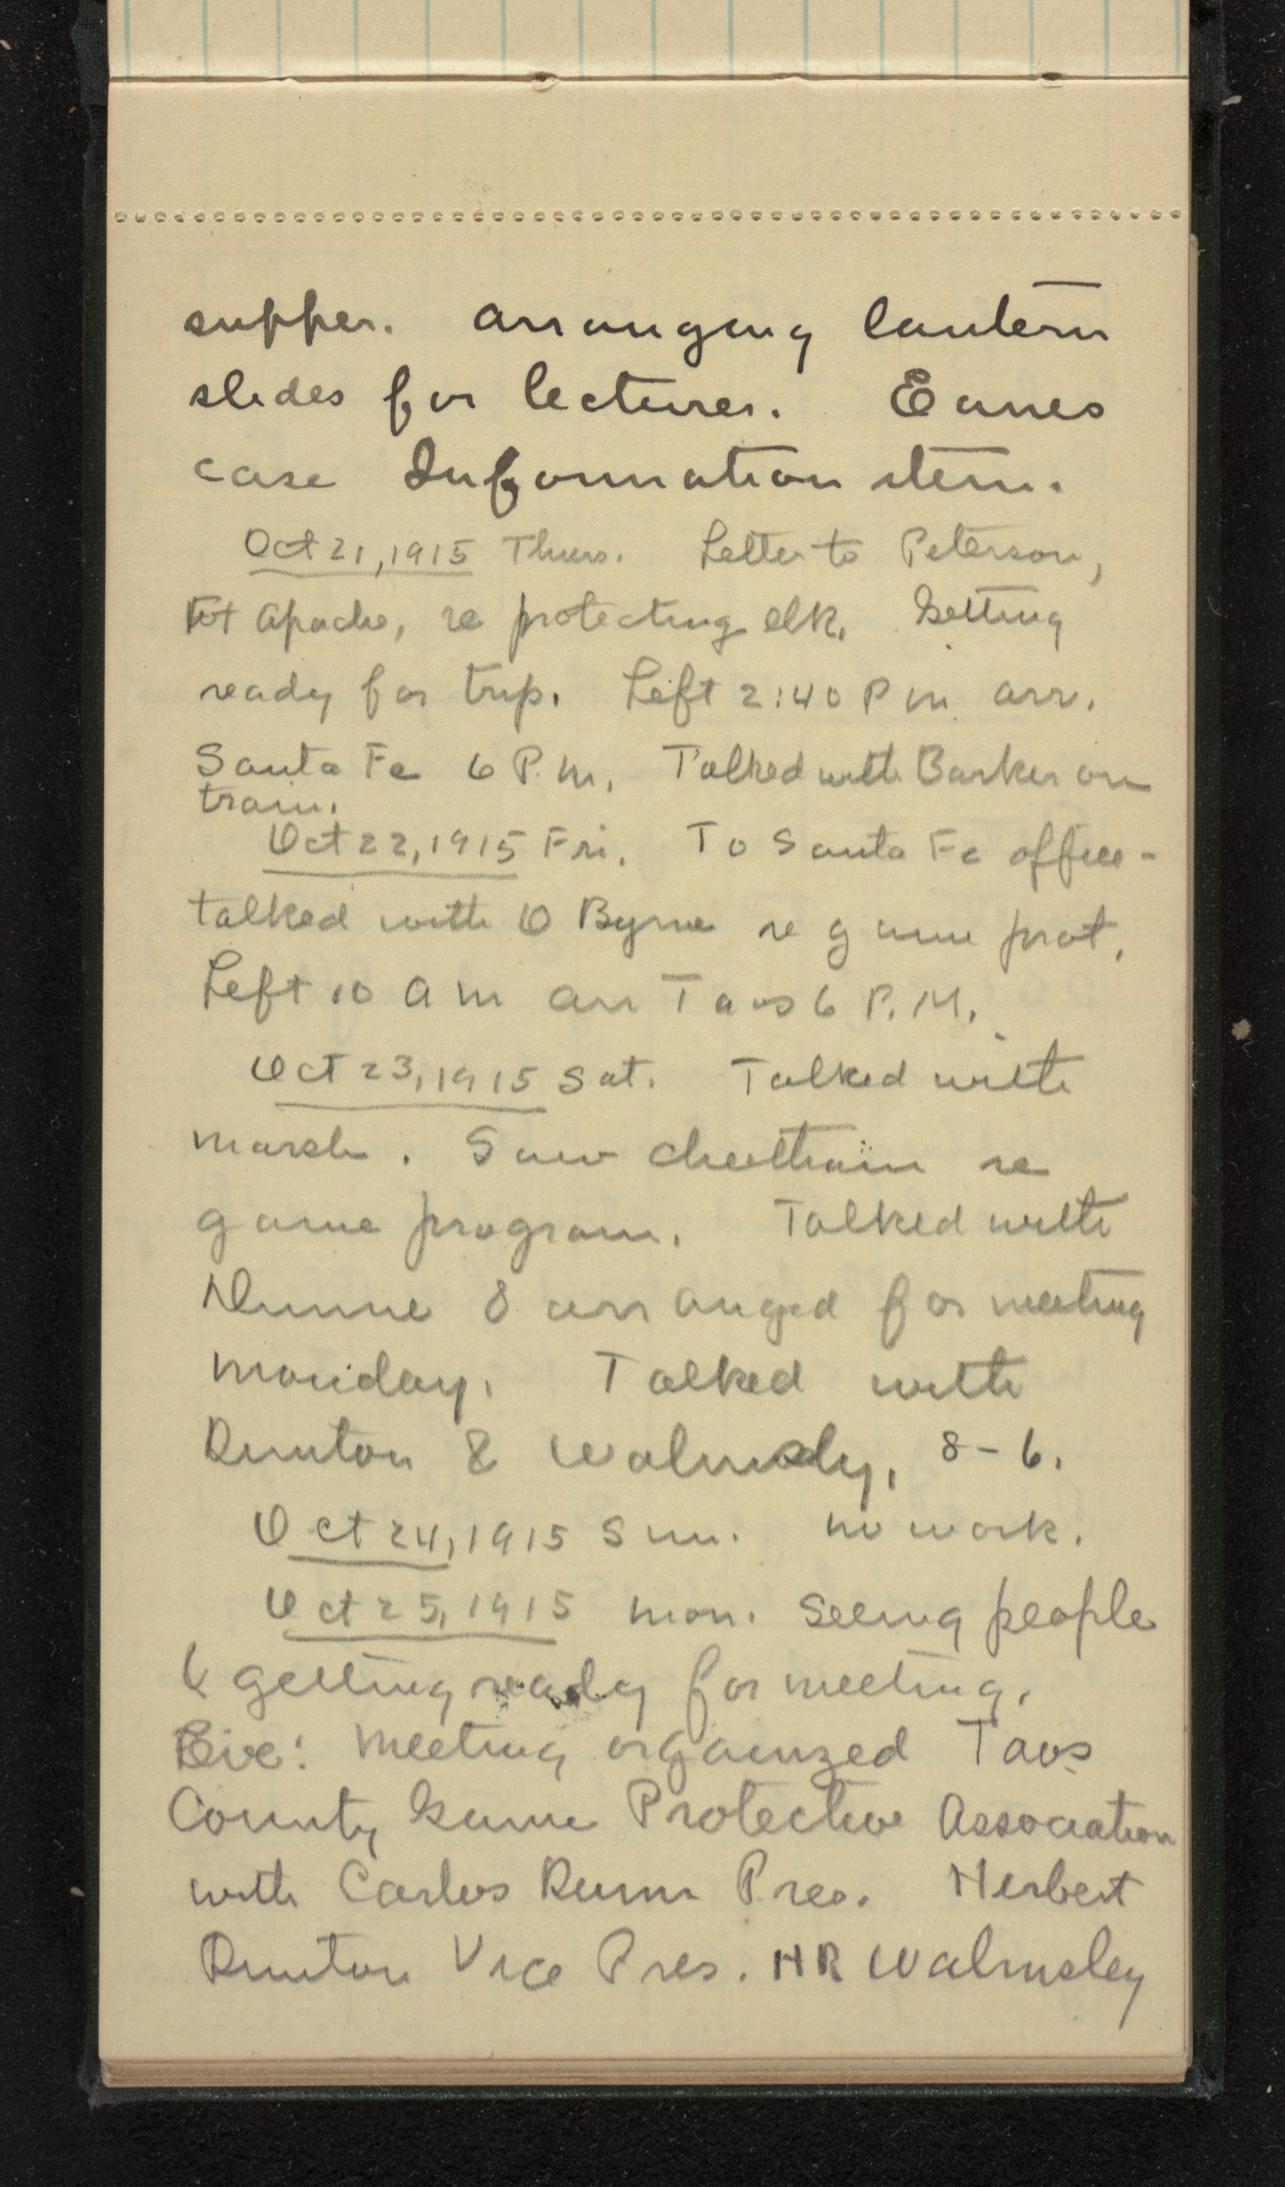 supper. Arranging lantern
slides for lectures. Eanes
case Information item.
Oct 21, 1915 Thurs. Letter to Peterson,
Ft Apache, re protecting elk. Getting
ready for trip. Left 2:40 P M arr.
Santa Fe 6 P.M. Talked with Barker on
train.
Oct 22, 1915 Fri. To Santa Fe office -
talked with O Byrne re game prot.
Left 10 A M arr Taos 6 P.M.
Oct 23, 1915 Sat. Talked with
Marsh. Saw Cheetham re
game program. Talked with
Dunne & arranged for meeting
Monday. Talked with
Dunton & Walmsly, 8-6.
Oct 24, 1915 Sun. No work.
Oct 25, 1915 Mon. Seeing people
& getting ready for meeting.
Eve: Meeting organized Taos
County Game Protective Association
with Carlos Dunn Pres. Herbert
Dunton Vice Pres. HR Walmsley